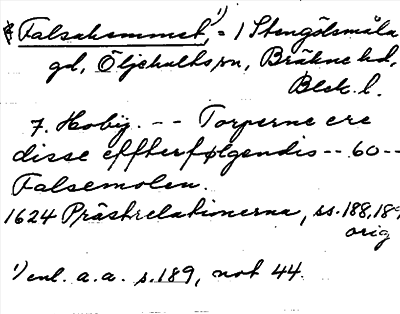 Falsahemmet,¹⁾ = 1 Stengölsmåla
gd, Öljehults sn, Bräkne hd,
Blek. l.
7. Hobÿ. -- Torperne ere
disse effterfølgendis -- 60 --
Falsemolen.
1624 Prästrelationerna, ss. 188, 189
orig
¹⁾ enl. a.a. s. 189, not 44.